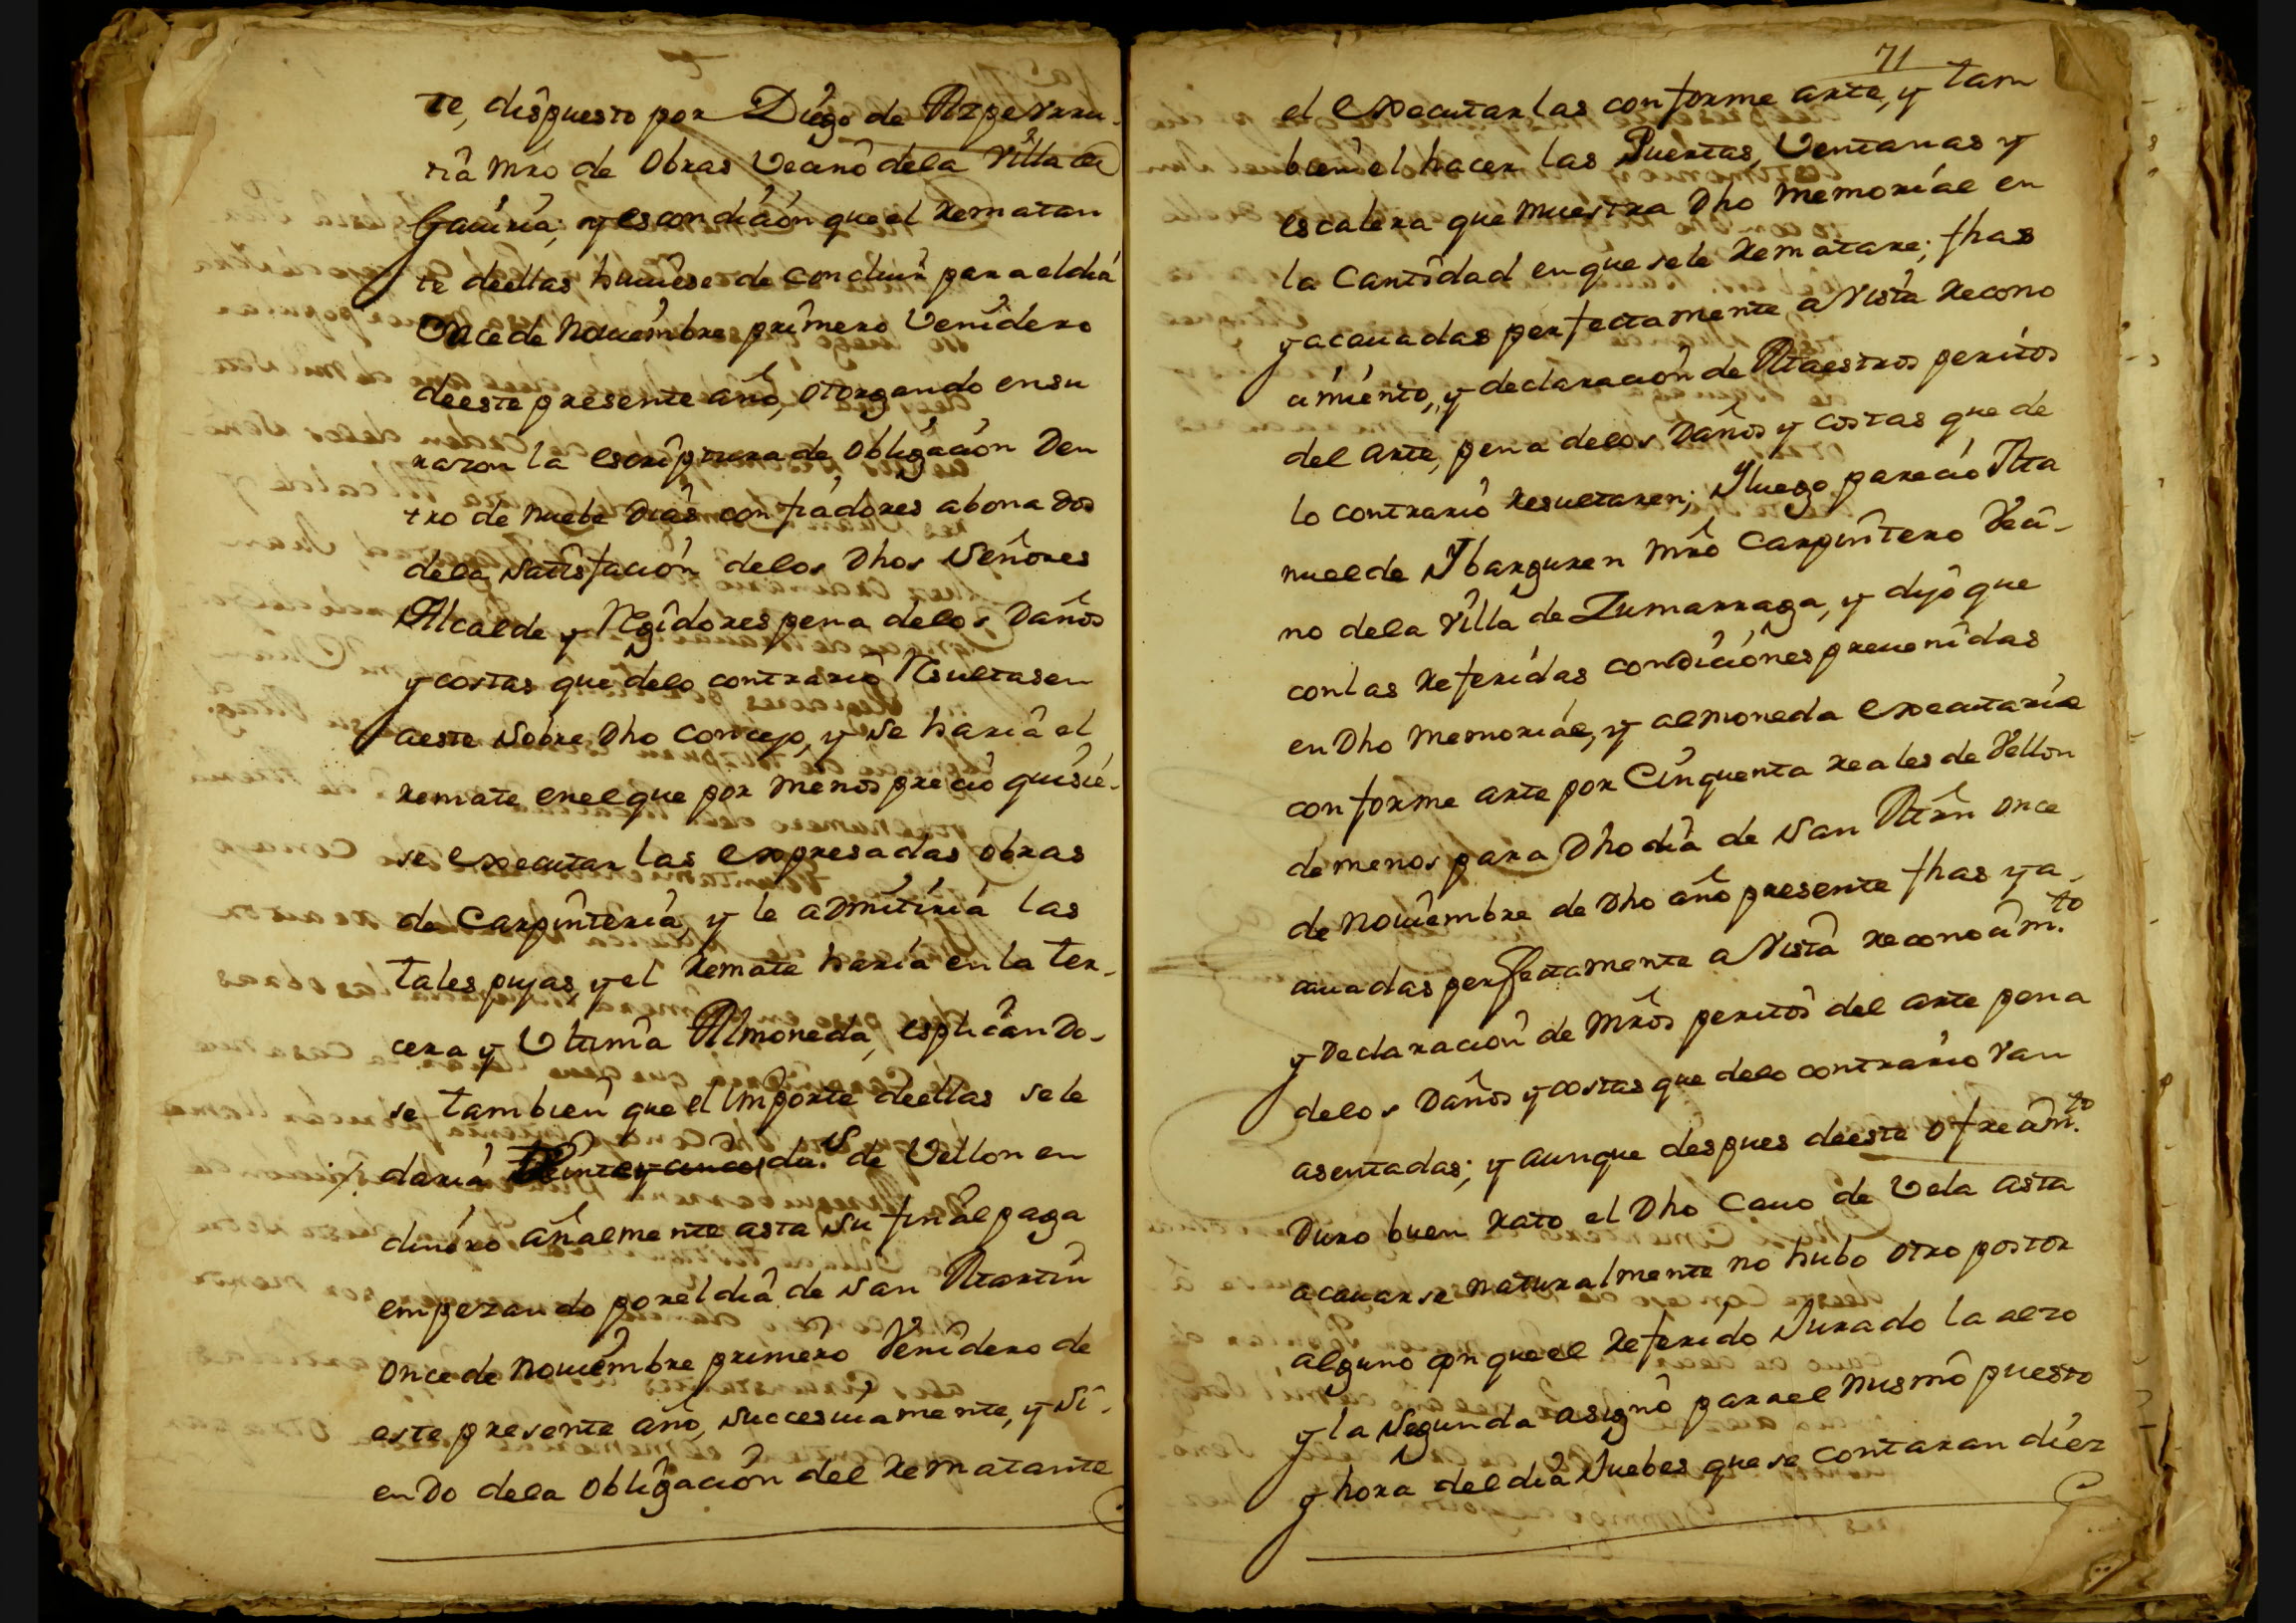 te, dispuesto por Diego de Azpeurru-
tia Mro de obras Vecino dela Villa de
Gauiria; y es condicion que el Rematan
te deellas huuiese de concluir para el dia
Once de Nouiembre primero Venidero
deeste presente año, otorgando en su
razon la escriptura de obligacion Den
tro de nuebe Dias con fiadores abonados
dela satisfacion delos Dhos Señores
Alcalde y Regidores pena delos Daños
y costas que delo contrario Resultasen
aeste Sobre Dho Concejo, y se haria el
remate enelque por menos precio quisie-
se executar las expresadas obras
de Carpinteria, y le admitiria las
tales pujas, y el Remate haria en la ter-
cera y Vltima Almoneda, esplicando-
se tambien que el Importe deellas se le
daria treinta y cinco du.s de Vellon en
dinero añalmente asta su final paga
empezando por el dia de San Martin
Once de Nouiembre primero Venidero de
este presente año, successiuamente, y si-
endo dela obligacion del Rematante
71
el executar las conforme arte, y tam
bien el hacer las Puertas, Ventanas y
escalera que muestra Dho Memorial en
la Cantidad en que se le Rematare; fhas
y acauadas perfectamente a Vista Recono
cimiento, y declaracion de Maestros peritos
del arte, pena delos Daños y costas que de
lo contrario Resultaren; Y luego parecio Ma
nuel de Ybarguren Mro Carpintero Veci-
no dela Villa de Zumarraga, y dijo que
con las Referidas condiciones preuenidas
en Dho Memorial, y almoneda executaria
conforme arte por Cinquenta Reales de Vellon
de menos para Dho dia de San Mrn once
de Nouiembre de Dho año presente fhas y a-
cauadas perfectamente a Vista Reconocim.to
y Declaracion de Mros peritos del arte pena
delos Daños y costas que delo contrario Van
asentadas; y aunque despues deeste ofrecim.to
Duro buen Rato el Dho Cauo de Vela asta
acauarse naturalmente no hubo otro postor
alguno con que el Referido Jurado la alzo
y la Segunda asigno para el mismo puesto
y hora del dia Juebes que se contaran diez